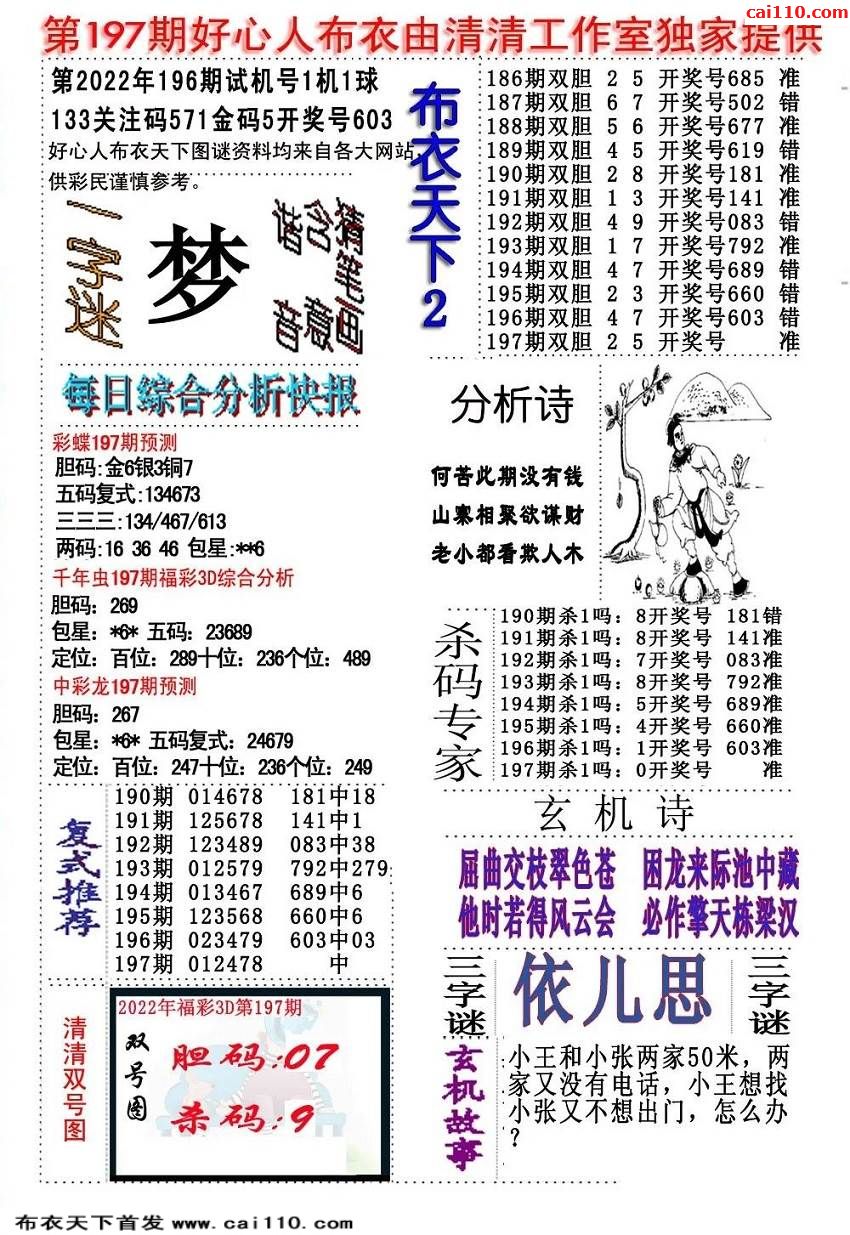 cai110.com
第197期好心人布衣由清清工作室独家提供
第2022年196期试机号1机1球
133关注码571金码5开奖号603
好心人布衣天下图谜资料均来自各大网站,
供彩民谨慎参考。
一字迷
梦
猜笔画
含意
谐音
布衣天下2
186期双胆 2 5 开奖号685 准
187期双胆 6 7 开奖号502 错
188期双胆 5 6 开奖号677 准
189期双胆 4 5 开奖号619 错
190期双胆 2 8 开奖号181 准
191期双胆 1 3 开奖号141 准
192期双胆 4 9 开奖号083 错
193期双胆 1 7 开奖号792 准
194期双胆 4 7 开奖号689 错
195期双胆 2 3 开奖号660 错
196期双胆 4 7 开奖号603 错
197期双胆 2 5 开奖号 准
每日综合分析快报
彩蝶197期预测
胆码:金6银3铜7
五码复式:134673
三三三:134/467/613
两码:16 36 46 包星:**6
千年虫197期福彩3D综合分析
胆码：269
包星：*6* 五码：23689
定位：百位：289十位：236个位：489
中彩龙197期预测
胆码：267
包星：*6* 五码复式：24679
定位：百位：247十位：236个位：249
分析诗
何苦此期没有钱
山寨相聚欲谋财
老小都看欺人木
杀码专家
190期杀1吗：8开奖号 181错
191期杀1吗：8开奖号 141准
192期杀1吗：7开奖号 083准
193期杀1吗：8开奖号 792准
194期杀1吗：5开奖号 689准
195期杀1吗：4开奖号 660准
196期杀1吗：1开奖号 603准
197期杀1吗：0开奖号 准
复式推荐
190期 014678 181中18
191期 125678 141中1
192期 123489 083中38
193期 012579 792中279
194期 013467 689中6
195期 123568 660中6
196期 023479 603中03
197期 012478 中
玄机诗
屈曲交枝翠色苍 困龙来际池中藏
他时若得风云会 必作擎天栋梁汉
三字谜
依儿思
三字谜
清清双号图
2022年福彩3D第197期
双号图
胆码:07
杀码:9
玄机故事
小王和小张两家50米，两
家又没有电话，小王想找
小张又不想出门，怎么办
？
布衣天下首发 www.cai110.com